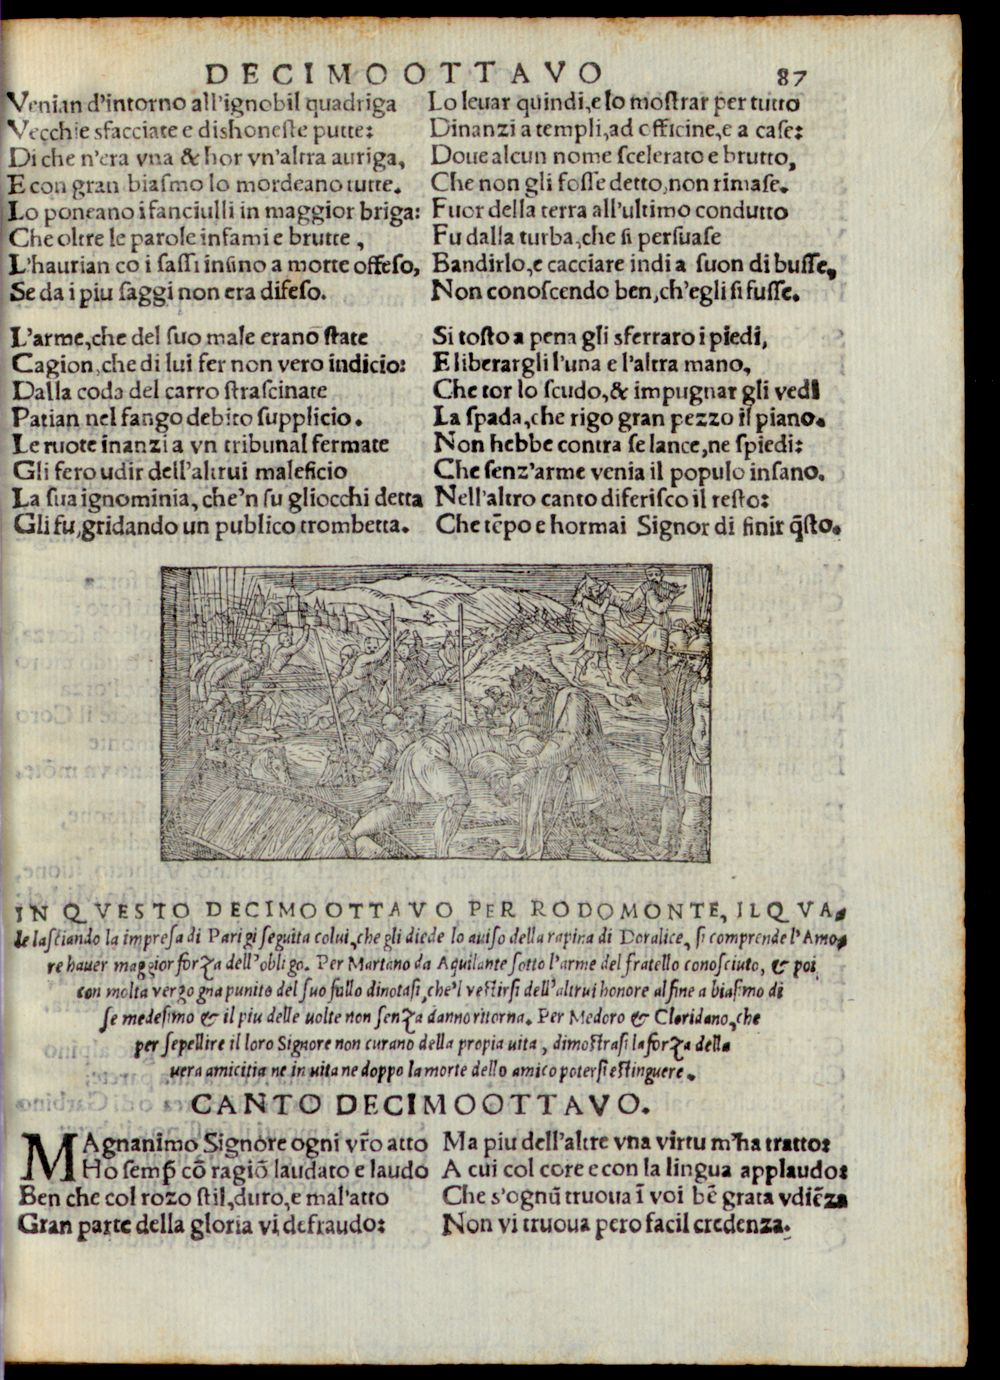 DECIMOOTTAVO 87
Venian d'intorno all'ignobil quadriga
Vecchie sfacciate e dishoneste putte:
Di che n'era vna & hor vn'altra auriga,
E con gran biasmo lo mordeano tutte.
Lo poneano i fanciulli in maggior briga:
Che oltre le parole infami e brutte,
L'haurian co i sassi insino a morte offeso,
Se da i piu saggi non era difeso.
L'arme, che del suo male erano state
Cagion, che di lui fer non vero indicio:
Dalla coda del carro strascinate
Patian nel fango debito supplicio.
Le ruote inanzi a vn tribunal fermate
Gli fero udir dell'altrui maleficio
La sua ignominia, che'n su gliocchi detta
Gli fu, gridando un publico trombetta.
Lo leuar quindi, e lo mostrar per tutto
Dinanzi a templi, ad officine, e a case:
Doue alcun nome scelerato e brutto,
Che non gli fosse detto, non rimase.
Fuor della terra all'ultimo condutto
Fu dalla turba, che si persuase
Bandirlo, e cacciare indi a suon di busse,
Non conoscendo ben, ch'egli si fusse.
Si tosto a pena gli sferraro i piedi,
E liberargli l'una e l'altra mano,
Che tor lo scudo, & impugnar gli vedi
La spada, che rigo gran pezzo il piano.
Non hebbe contra se lance, ne spiedi:
Che senz'arme venia il populo insano.
Nell'altro canto diferisco il resto:
Che tēpo e hormai Signor di finir q̄sto.
IN QVESTO DECIMOOTTAVO PER RODOMONTE, ILQVA-
le lasciando la impresa di Parigi seguita colui, che gli diede lo auiso della rapina di Doralice, si comprende l'Amo-
re hauer maggior forza dell'obligo. Per Martano da Aquilante sotto l'arme del fratello conosciuto, & poi
con molta vergogna punito del suo fallo dinotasi, che'l vestirsi dell'altrui honore al fine a biasmo di
se medesimo & il piu delle uolte non senza danno ritorna. Per Medoro & Cloridano, che
per sepellire il loro Signore non curano della propia uita, dimostrasi la forza della
uera amicitia ne in uita ne doppo la morte dello amico potersi estinguere.
CANTO DECIMOOTTAVO.
MAgnanimo Signore ogni vr̄o atto
Ho semp̄ cō ragiō laudato e laudo
Ben che col rozo stil, duro, e mal'atto
Gran parte della gloria vi defraudo:
Ma piu dell'altre vna virtu m'ha tratto:
A cui col core e con la lingua applaudo:
Che s'ognū truoua ī voi bē grata vdiēza
Non vi truoua pero facil credenza.